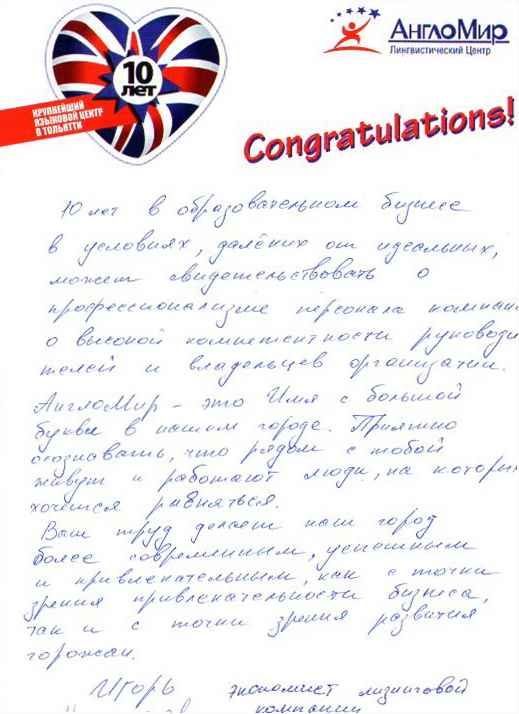 10 ЛЕТ
КРУПНЕЙШИЙ
ЯЗЫКОВОЙ ЦЕНТР
В ТОЛЬЯТТИ
АНГЛОМИР
ЛИНГВИСТИЧЕСКИЙ ЦЕНТР
Congratulations!
10 лет в образовательном бизнесе
в условиях, далёких от идеальных,
может свидетельствовать о
профессионализме персонала компан
о высокой компетентности руководи
телей и владельцев организации.
АнглоМир – это Имя с большой
буквы в нашем городе. Приятно
осознавать, что рядом с тобой
живут и работают люди, на которых
хочется равняться.
Ваш труд делает наш город
более современным, успешным
и привлекательным, как с точки
зрения привлекательности бизнеса,
так и с точки зрения развития
горожан.
Игорь экономист лизинговой
компании